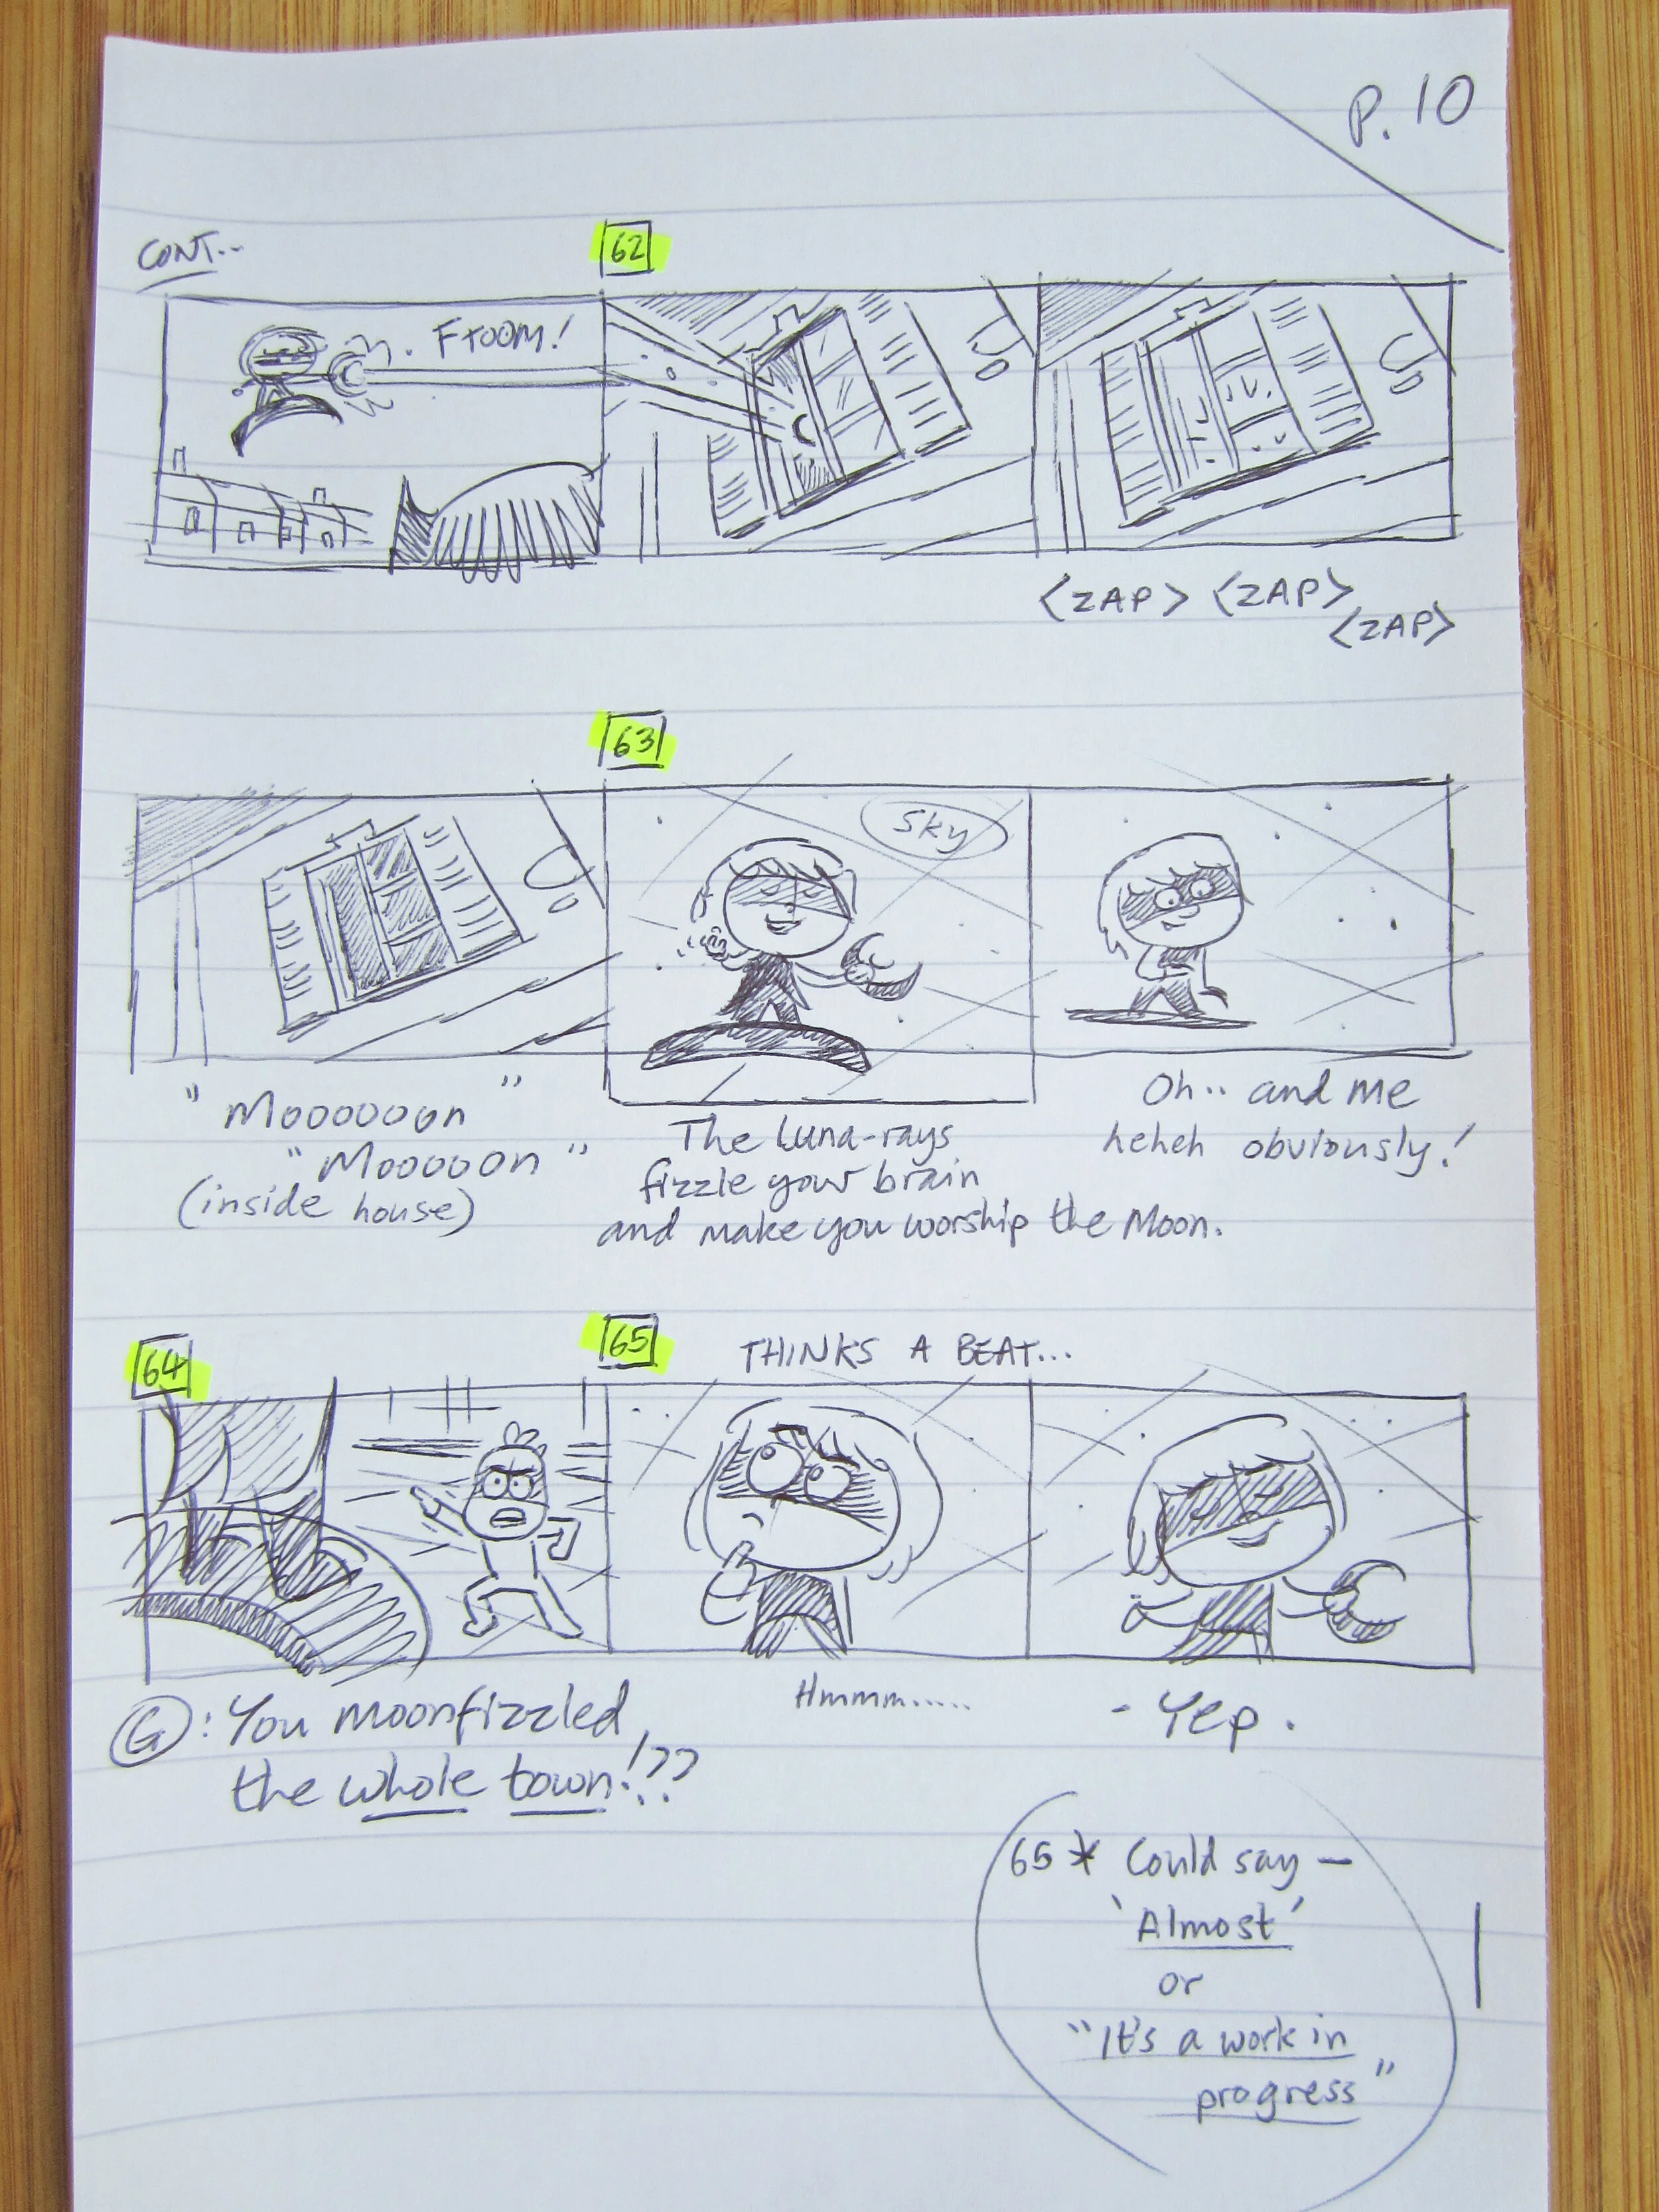 P. 10
CONT..
62
FTOOM!
<ZAP> <ZAP>
<ZAP>
63
Sky
"Moooooon"
"Mooooon"
(inside house)
The Luna-rays
fizzle your brain
and make you worship the Moon.
Oh.. and me
heheh obviously!
64
65
THINKS A BEAT...
G: You moonfizzled
the whole town!??
Hmmm.....
- Yep.
65 * Could say -
'Almost'
or
"It's a work in
progress"